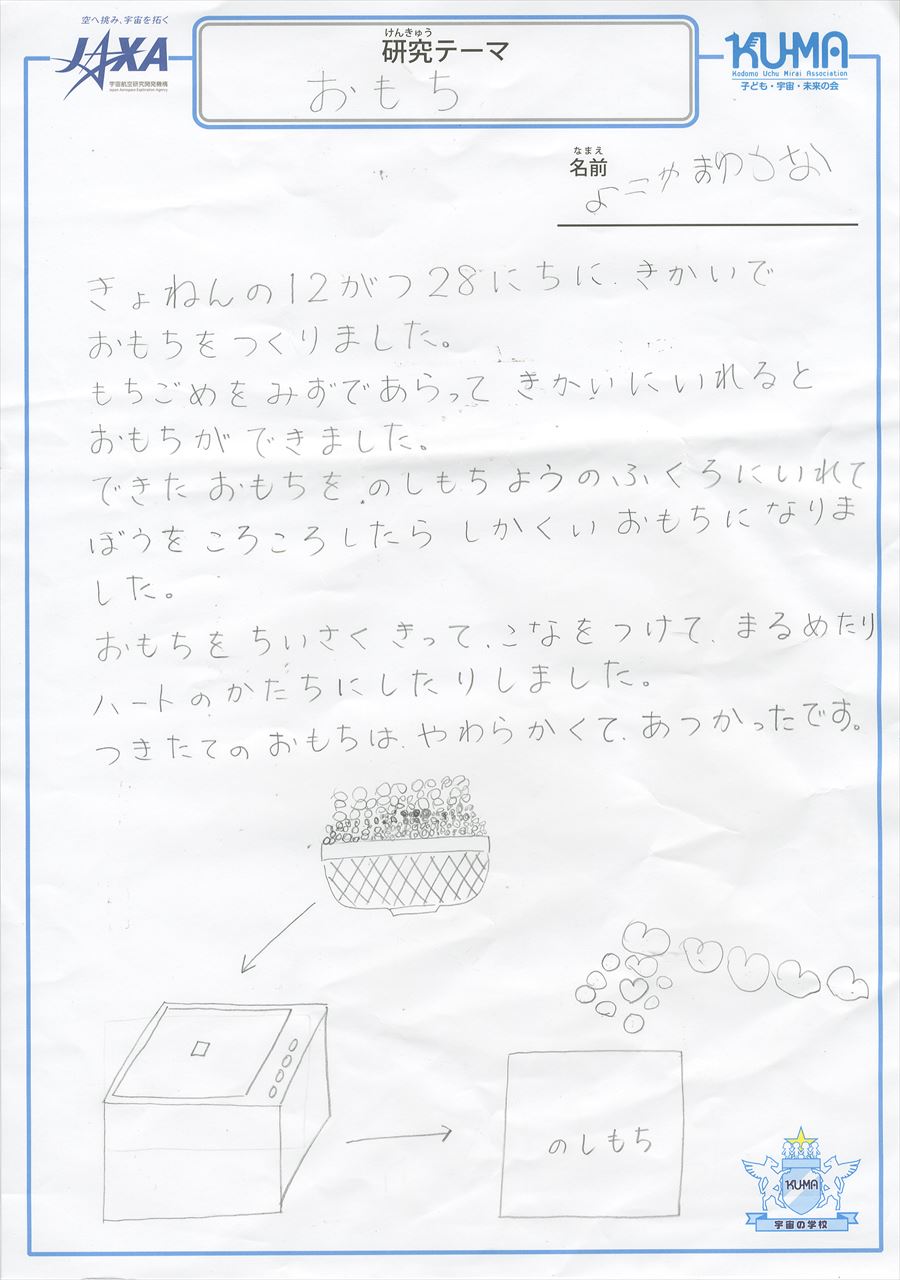 空へ挑み、宇宙を拓く
JAXA
宇宙航空研究開発機構
Japan Aerospace Exploration Agency
けんきゅう
研究テーマ
おもち
KU-MA
Kodomo Uchu Mirai Association
子ども・宇宙・未来の会
なまえ
名前
よこやまわかな
きょねんの12がつ28にちに、きかいで
おもちをつくりました。
もちごめをみずであらって きかいにいれると
おもちができました。
できた おもちを のしもちようのふくろにいれて
ぼうを ころころしたら しかくい おもちになりま
した。
おもちを ちいさく きって、こなをつけて、まるめたり
ハートのかたちにしたりしました。
つきたての おもちは、やわらかくて、あつかったです。
のしもち
KU-MA
宇宙の学校